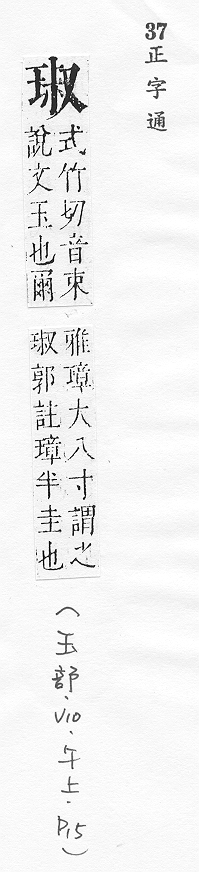 37
正字通
琡
式竹切音束
說文玉也爾
雅璋大八寸謂之
琡郭註璋半圭也
(玉部.V10.午上.P15)